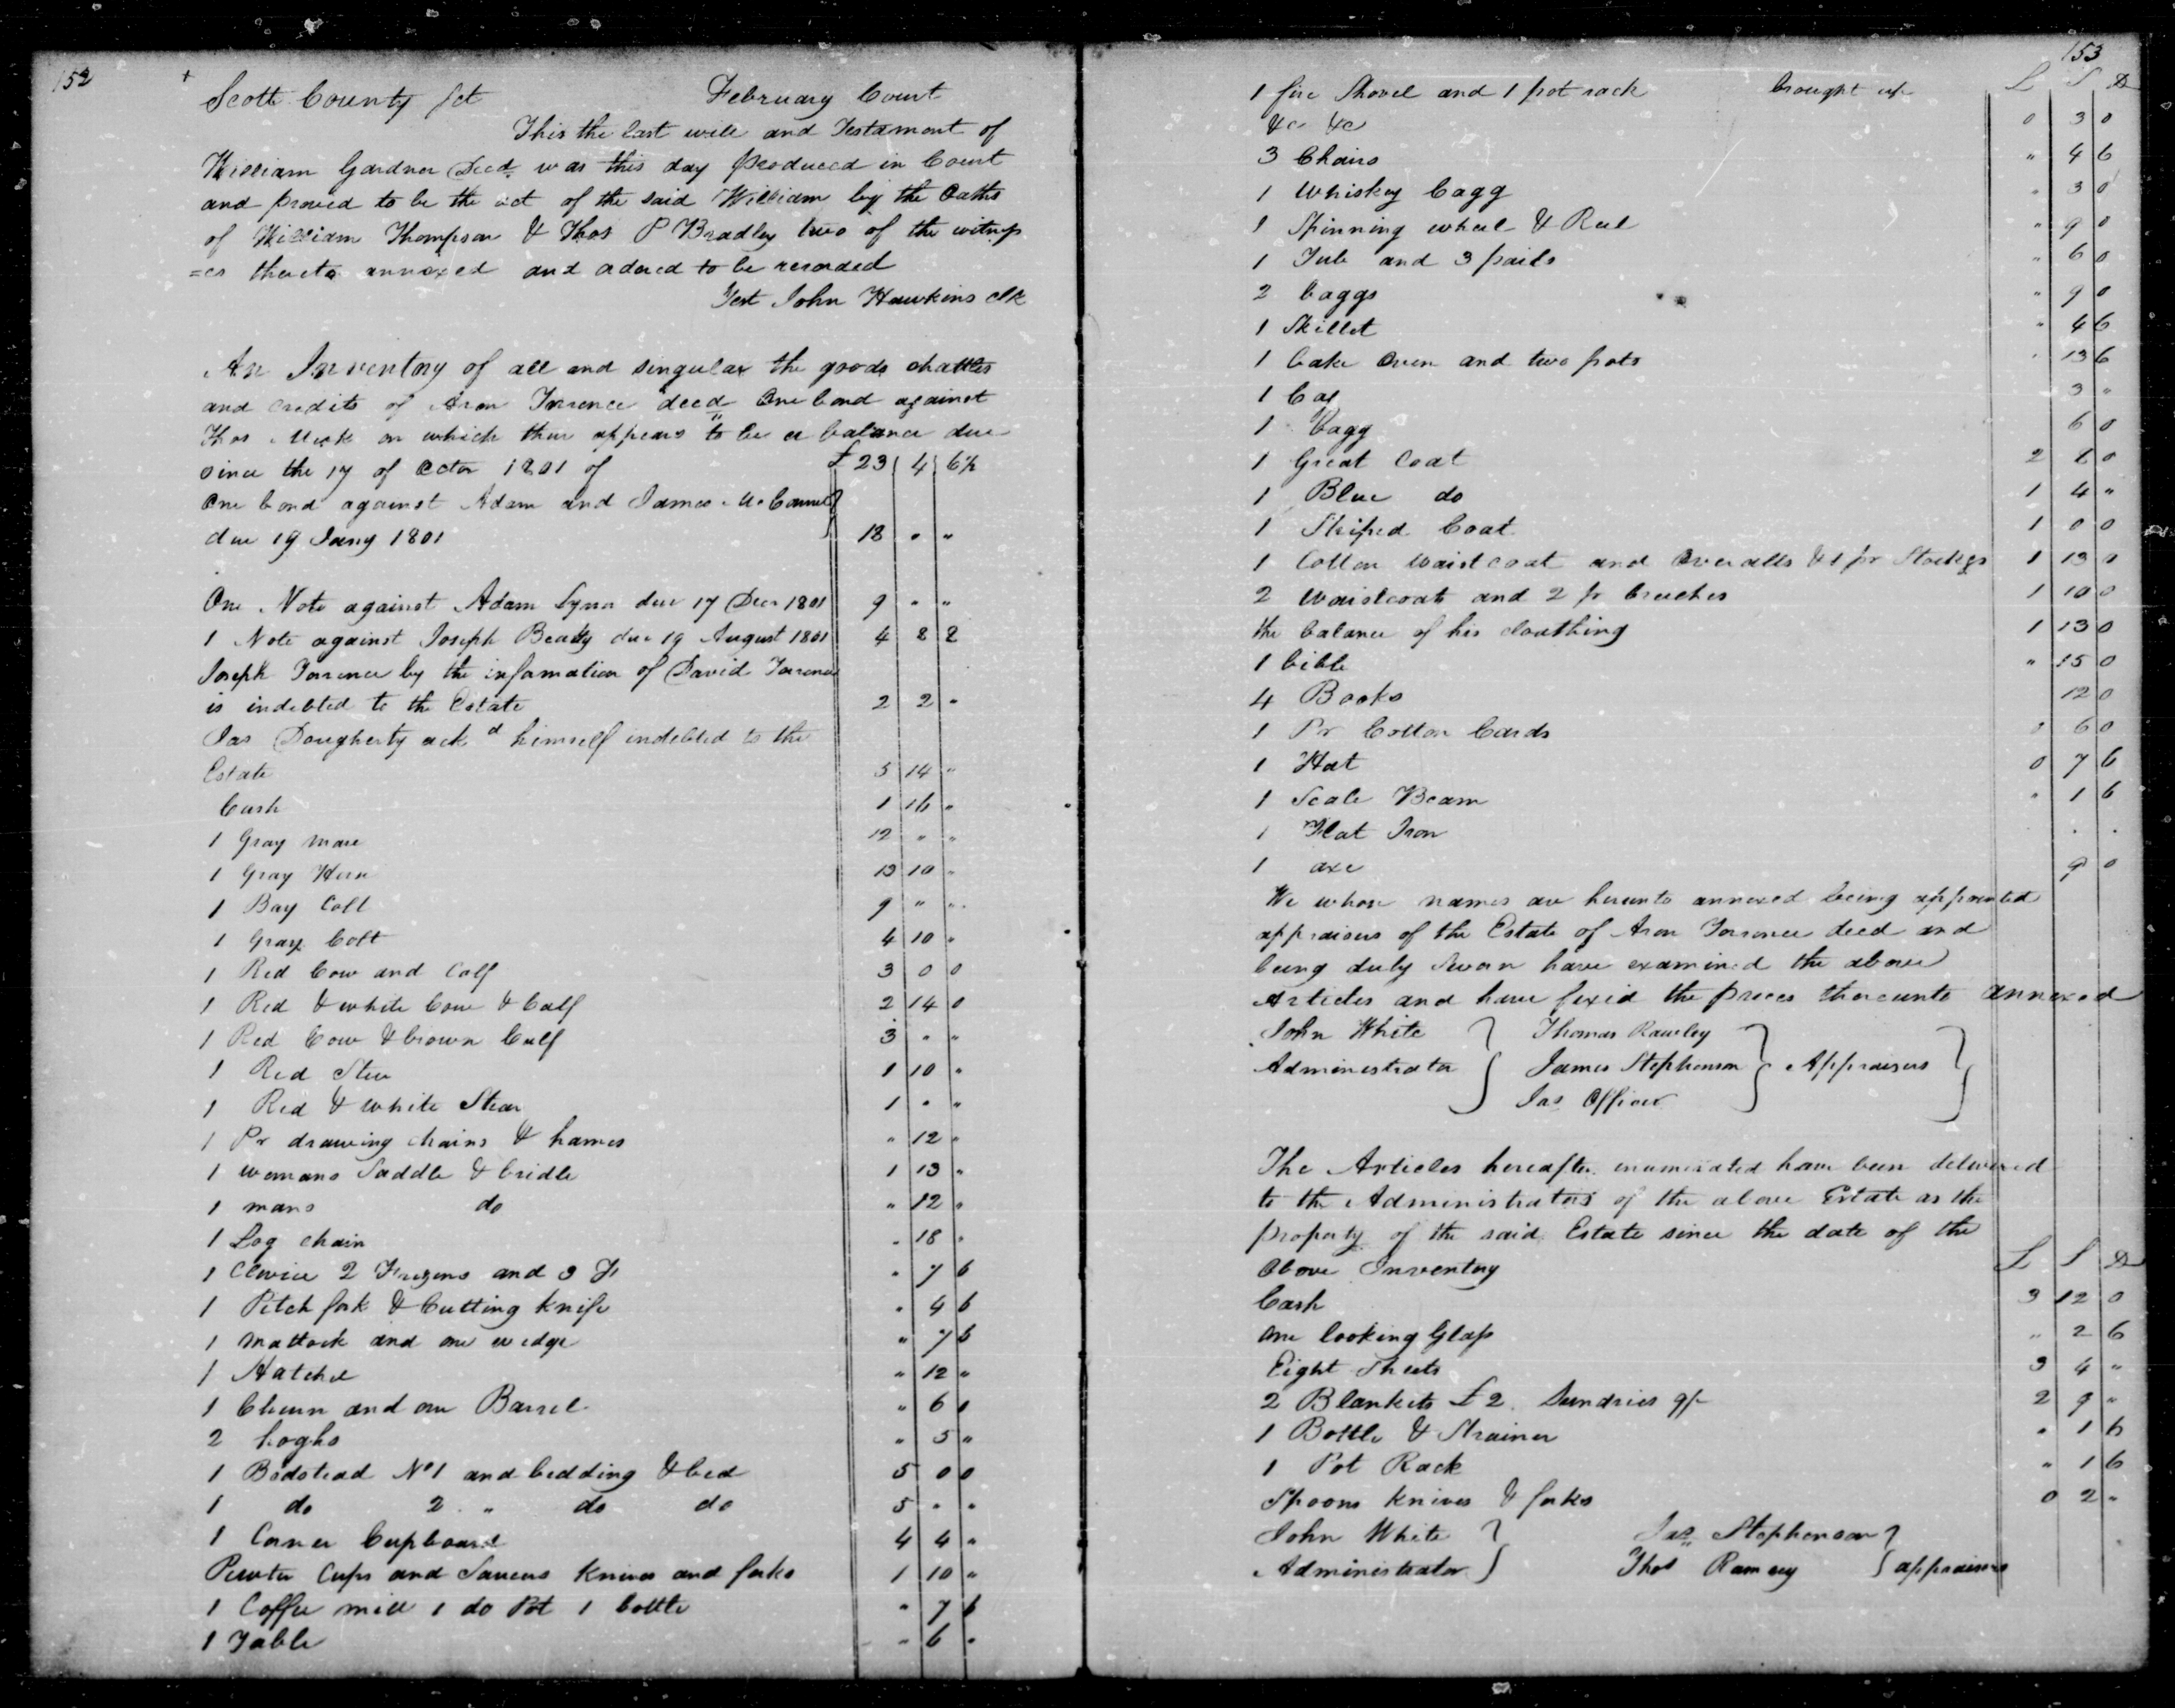 152
Scott County Sct February Court
This the last will and Testament of
William Gardner Decd. was this day produced in Court
and proved to be the act of the said William by the Oaths
of William Thompson & Thos P Bradley two of the witness
=es thereto annexed and ordered to be recorded
Test John Hawkins clk
An Inventory of all and singular the goods chattles
and credits of Aron Torrence decd One bond against
Thos Meek on which there appears to be a balance due
since the 17 of Octor 1801 of £ 23 4 6½
One bond against Adam and James McConnel
due 19 Jany 1801 18 " "
One Note against Adam Lynn due 17 Decr 1801 9 " "
1 Note against Joseph Beatty due 19 August 1801 4 8 2
Joseph Torrence by the information of David Torrence
is indebted to the Estate 2 2 "
Jas Dougherty ackd himself indebted to the
Estate 5 14 "
Cash 1 16 "
1 Gray mare 12 " "
1 Gray Horse 13 10 "
1 Bay Colt 9 " "
1 Gray Colt 4 10 "
1 Red Cow and Calf 3 0 0
1 Red & white Cow & Calf 2 14 0
1 Red Cow & brown Calf 3 " "
1 Red Steer 1 10 "
1 Red & white Stear 1 " "
1 Pr drawing chains & hames " 12 "
1 womans Saddle & bridle 1 13 "
1 mans do " 12 "
1 Log chain " 18 "
1 Clevice 2 and 3 " 7 6
1 Pitch fork & Cutting knife " 4 6
1 mattock and one wedge " 7 6
1 Hatchel " 12 "
1 Churn and one Barrel " 6 0
2 hoghs " 5 "
1 Bedstead No 1 and bedding & bed 5 0 0
1 do 2 " do do 5 " "
1 Corner Cupboard 4 4 "
Pewter Cups and Saucers knives and forks 1 10 "
1 Coffee mill 1 do Pot 1 bottle " 7 6
1 Table " 6 "
153
1 fire Shovel and 1 pot rack brought up L S D
&c &c 0 3 0
3 Chairs " 4 6
1 Whiskey Cagg " 3 0
1 Spinning wheel & Reel " 9 0
1 Tub and 3 pails " 6 0
2 baggs " 9 0
1 Skillet " 4 6
1 bake Oven and two pots " 13 6
1 3 "
1 bagg 6 0
1 Great Coat 2 0
1 Blue do 1 4 "
1 Striped Coat 1 0 0
1 Cotton Waistcoat and Overalls & 1 pr Stockgs 1 13 0
2 Waistcoats and 2 pr breeches 1 10 0
the balance of his clouthing 1 13 0
1 bible " 15 0
4 Books 12 0
1 Pr Cotton Cards 6 0
1 Hat 0 7 6
1 Scale Beam " 1 6
1 Flat Iron " "
1 axe 9 0
We whose names are hereunto annexed being appointed
appraisers of the Estate of Aron Torrence decd and
being duly Sworn have examined the above
Articles and have fixed the prices thereunto annexed
John White Thomas Rawley
Administrator James Stephenson Appraisers
Jas Officer
The Articles hereafter enumerated have been delivered
to the Administrators of the above Estate as the
property of the said Estate since the date of the
above Inventory L S D
Cash 3 12 0
One looking Glass " 2 6
Eight Sheets 3 4 "
2 Blankets £2. Sundries 9/ 2 9 "
1 Bottle & Strainer " 1 6
1 Pot Rack " 1 6
Spoons knives & forks 0 2 "
John White Jas Stephenson
Administrator Thos Ramsey appraisers